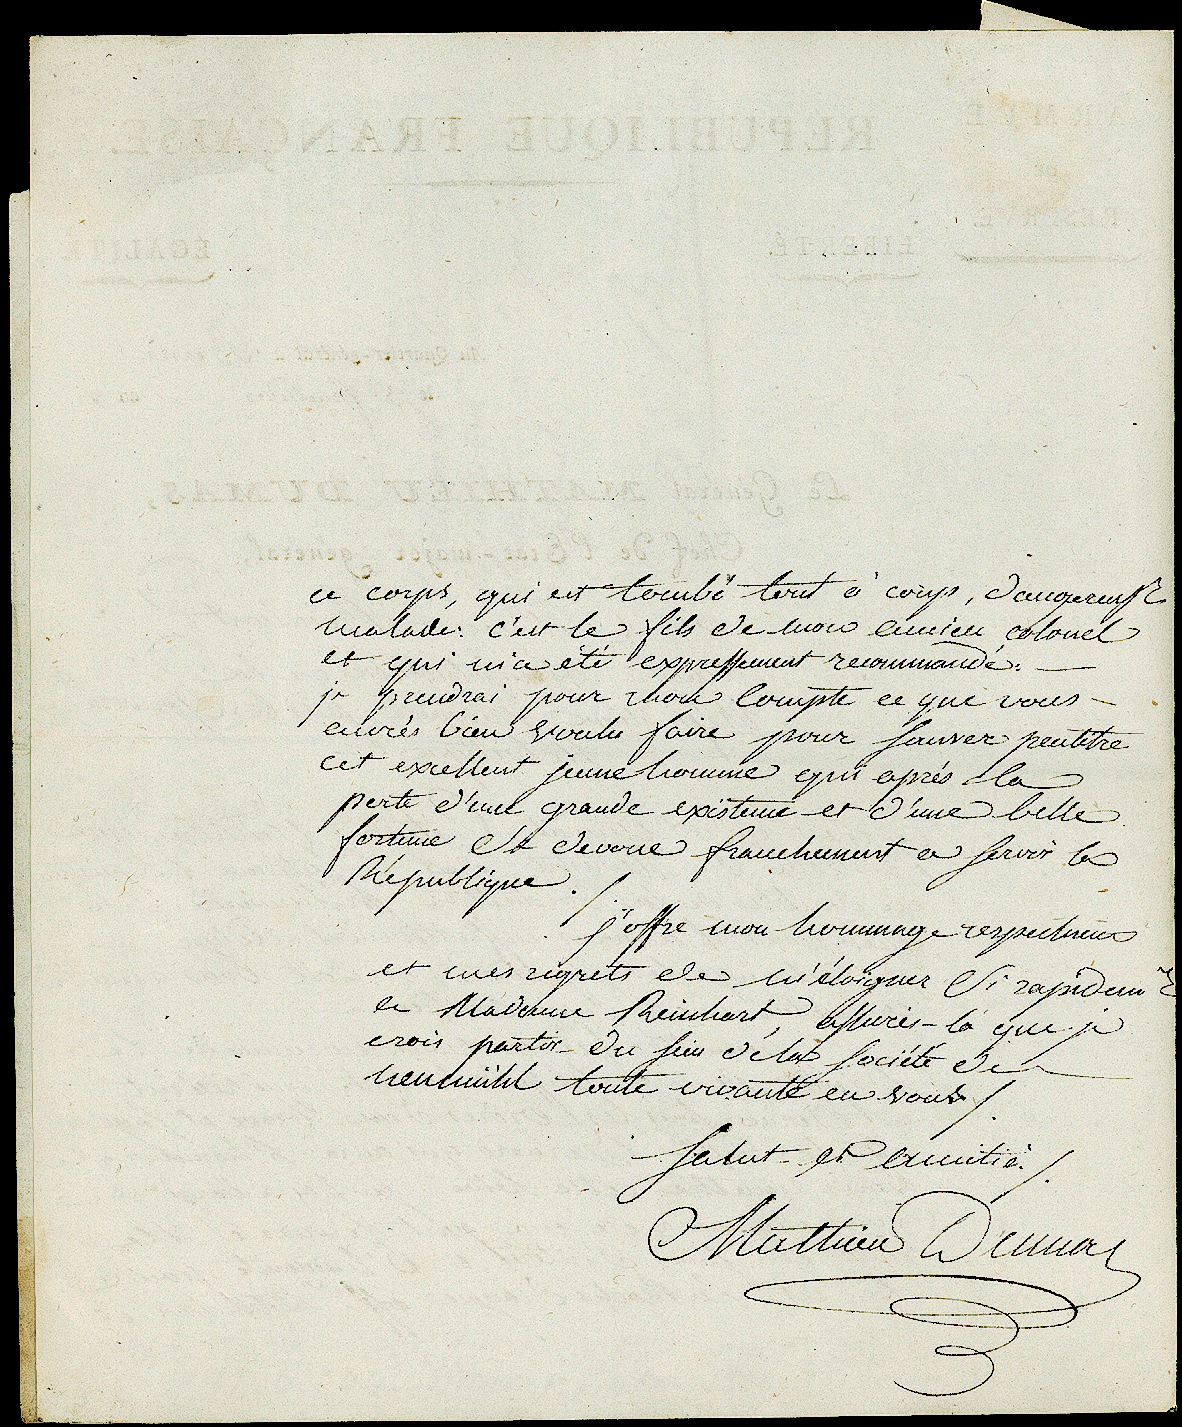 ce corps, qui est tombé tout à coup, dangereusᵗ
malade: c'est le fils de mon ancien colonel
et qui m'a été expressement recommandé: —
je prendrai pour mon compte ce que vous —
aurés bien voulu faire pour sauver peutêtre
cet excellent jeune homme qui après la
perte d'une grande existence et d'une belle
fortune s'est devoué franchement a servir la
République . /.
j'offre mon hommage respectueux
et mes regrets de m'éloigner si rapidemᵗ
a Madame Reinhart, assurés-la que je
crois partir du sein de la société de
neumühl toute vivante en vous /.
Salut et amitié. /.
Mathieu Dumas
REPUBLIQUE FRANÇAISE.
LIBERTÉ.
ÉGALITÉ
Au Quartier-général à
Le Général MATHIEU DUMAS,
Chef de l'Etat-major général,